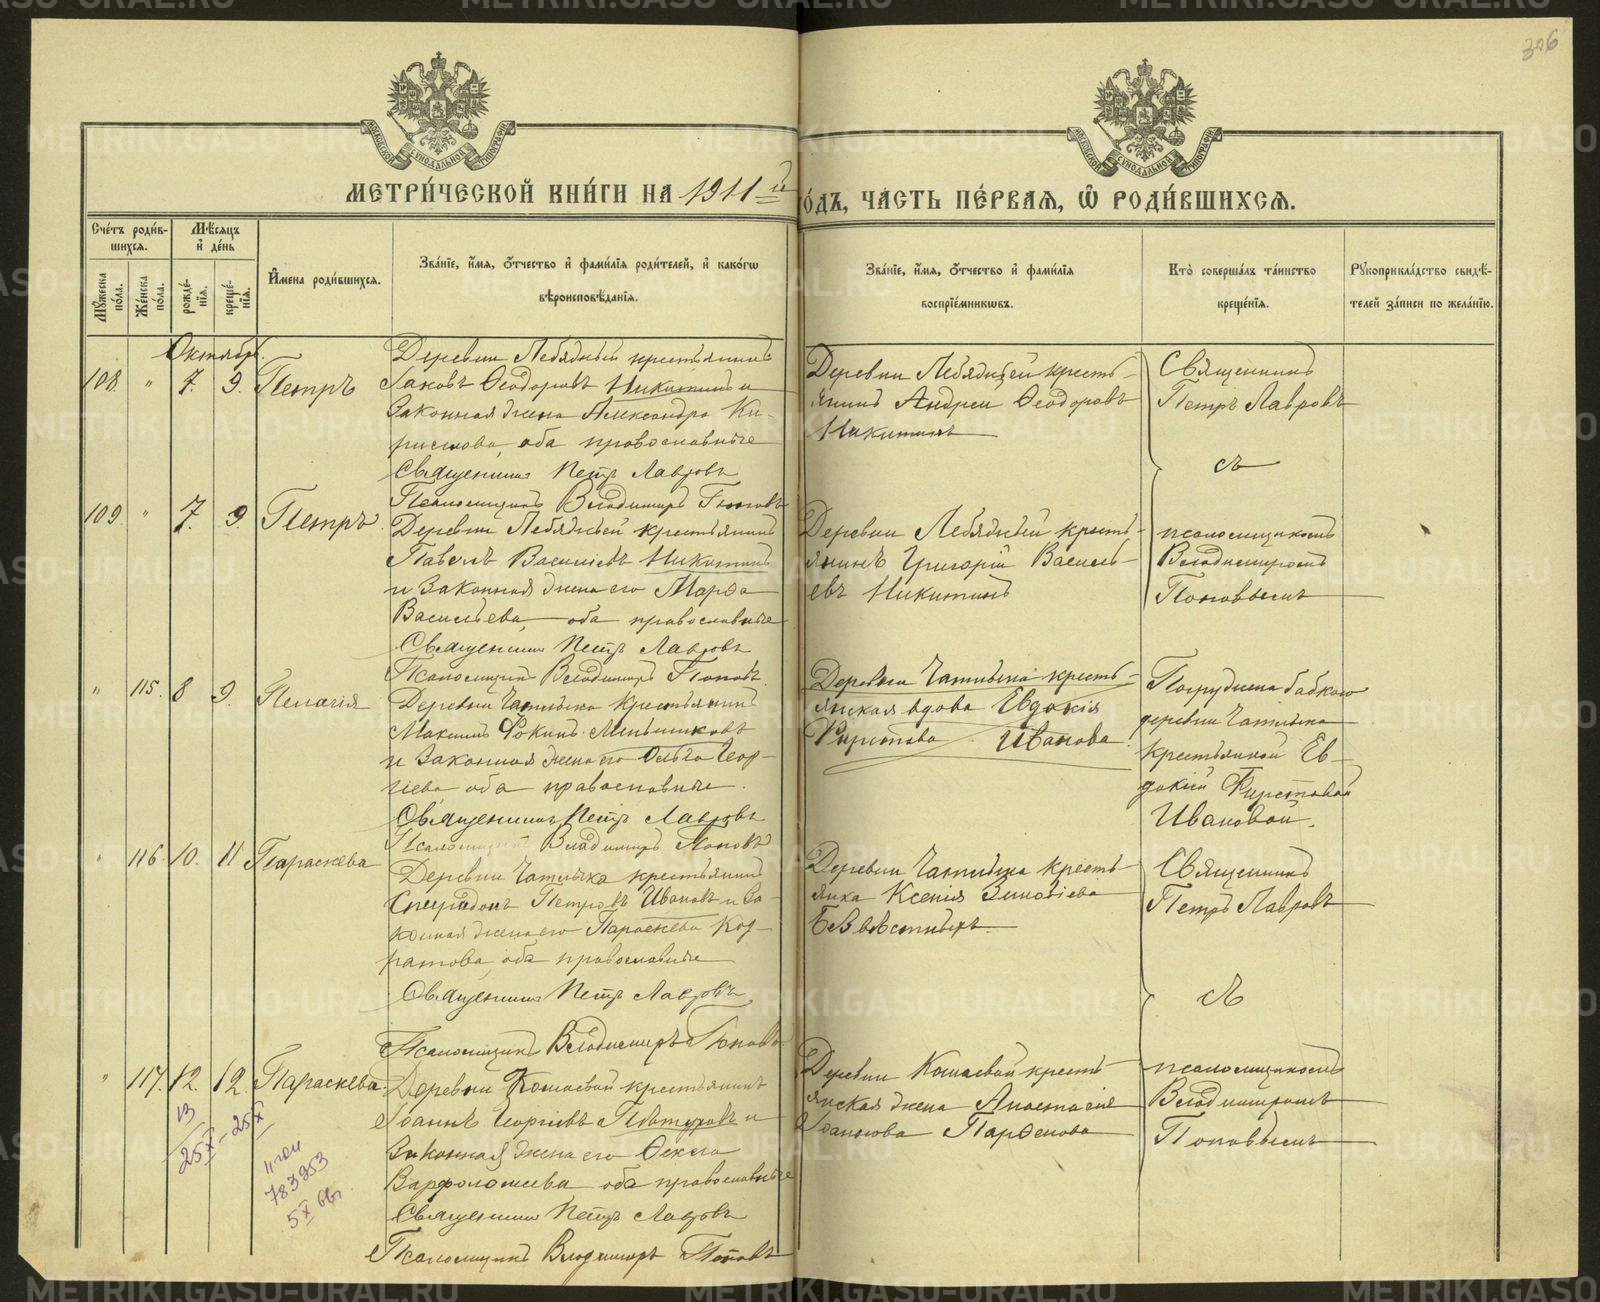 306
МЕТРИ́ЧЕСКОЙ КНИ́ГИ НА 1911 й
ОДЪ, ЧАСТЬ ПЕ́РВАЯ, Ѿ РОДИ́ВШИХСЯ.
Сче́тъ роди́вшихся.
Мѣсяцъ и де́нь
Мꙋжеска по́ла.
Же́нска по́ла.
рожде́нія.
креще́нія.
И́мена роди́вшихся.
Зва́ніе, и́мя, о́тчество и фами́лія роди́телей, и како́гѡ
вѣроисповѣ́данія.
Зва́ніе, и́мя, о́тчество и фами́лія
воспріе́мникѡвъ.
Кто̀ соверша́лъ та́инство
креще́нія.
Рꙋкоприкла́дство свидѣ́-
телей за́писи по жела́нію.
Октябрь.
108 " 7. 9. Петръ
Деревни Лебяжьей крестьянинъ
Іаковъ Ѳеодоровъ Никитинъ и
законная жена Александра Ки-
рилова, оба православные
Священникъ Петръ Лавровъ
Псаломщикъ Владимиръ Поповъ
Деревни Лебяжьей кресть-
янинъ Андрей Ѳеодоровъ
Никитинъ
Священникъ
Петръ Лавровъ
съ
109. " 7. 9. Петръ
Деревни Лебяжьей крестьянинъ
Павелъ Васильевъ Никитинъ
и законная жена его Марѳа
Васильева, оба православные
Священникъ Петръ Лавровъ
Псаломщикъ Владимиръ Поповъ.
Деревни Лебяжьей кресть-
янинъ Григорій Василь-
евъ Никитинъ
псаломщикомъ
Владимиромъ
Поповымъ
" 115. 8 9. Пелагія
Деревни крестьянинъ
Максимъ Фокинъ Мельниковъ
и законная жена его Ольга Геор-
гіева оба православные.
Священникъ Петръ Лавровъ
Псаломщикъ Владимиръ Поповъ
Деревни кресть-
янская вдова Евдокія
Иванова.
Погружена бабкою
деревни
крестьянкой Ев-
докіей
Ивановой.
" 116. 10. 11 Параскева
Деревни крестьянинъ
Спиридонъ Петровъ Ивановъ и за-
конная жена его Параскева Код-
ратова, оба православные
Священникъ Петръ Лавровъ
Псаломщикъ Владимиръ Поповъ
Деревни кресть-
янка Ксенія Зиновіева
Священникъ
Петръ Лавровъ
съ
" 117. 12. 12. Параскева.
Деревни Кошаевой крестьянинъ
Іоаннъ Георгіевъ и
законная жена его Ѳекла
Варфоломеева оба православные
Священникъ Петръ Лавровъ
Псаломщикъ Владимиръ Поповъ
Деревни Кошаевой кресть-
янская жена Анастасія
Іоаннова Парѳенова
псаломщикомъ
Владимиромъ
Поповымъ
13
25 X – 25 X
783953
5 X 66г.
METRIKI.GASO-URAL.RU